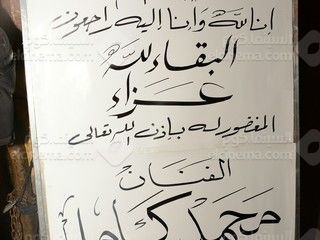 إنا لله وإنا إليه راجعون
البقاء لله
عزاء
المغفور له بإذن الله تعالى
الفنان
محمد كامل
elcinema.com